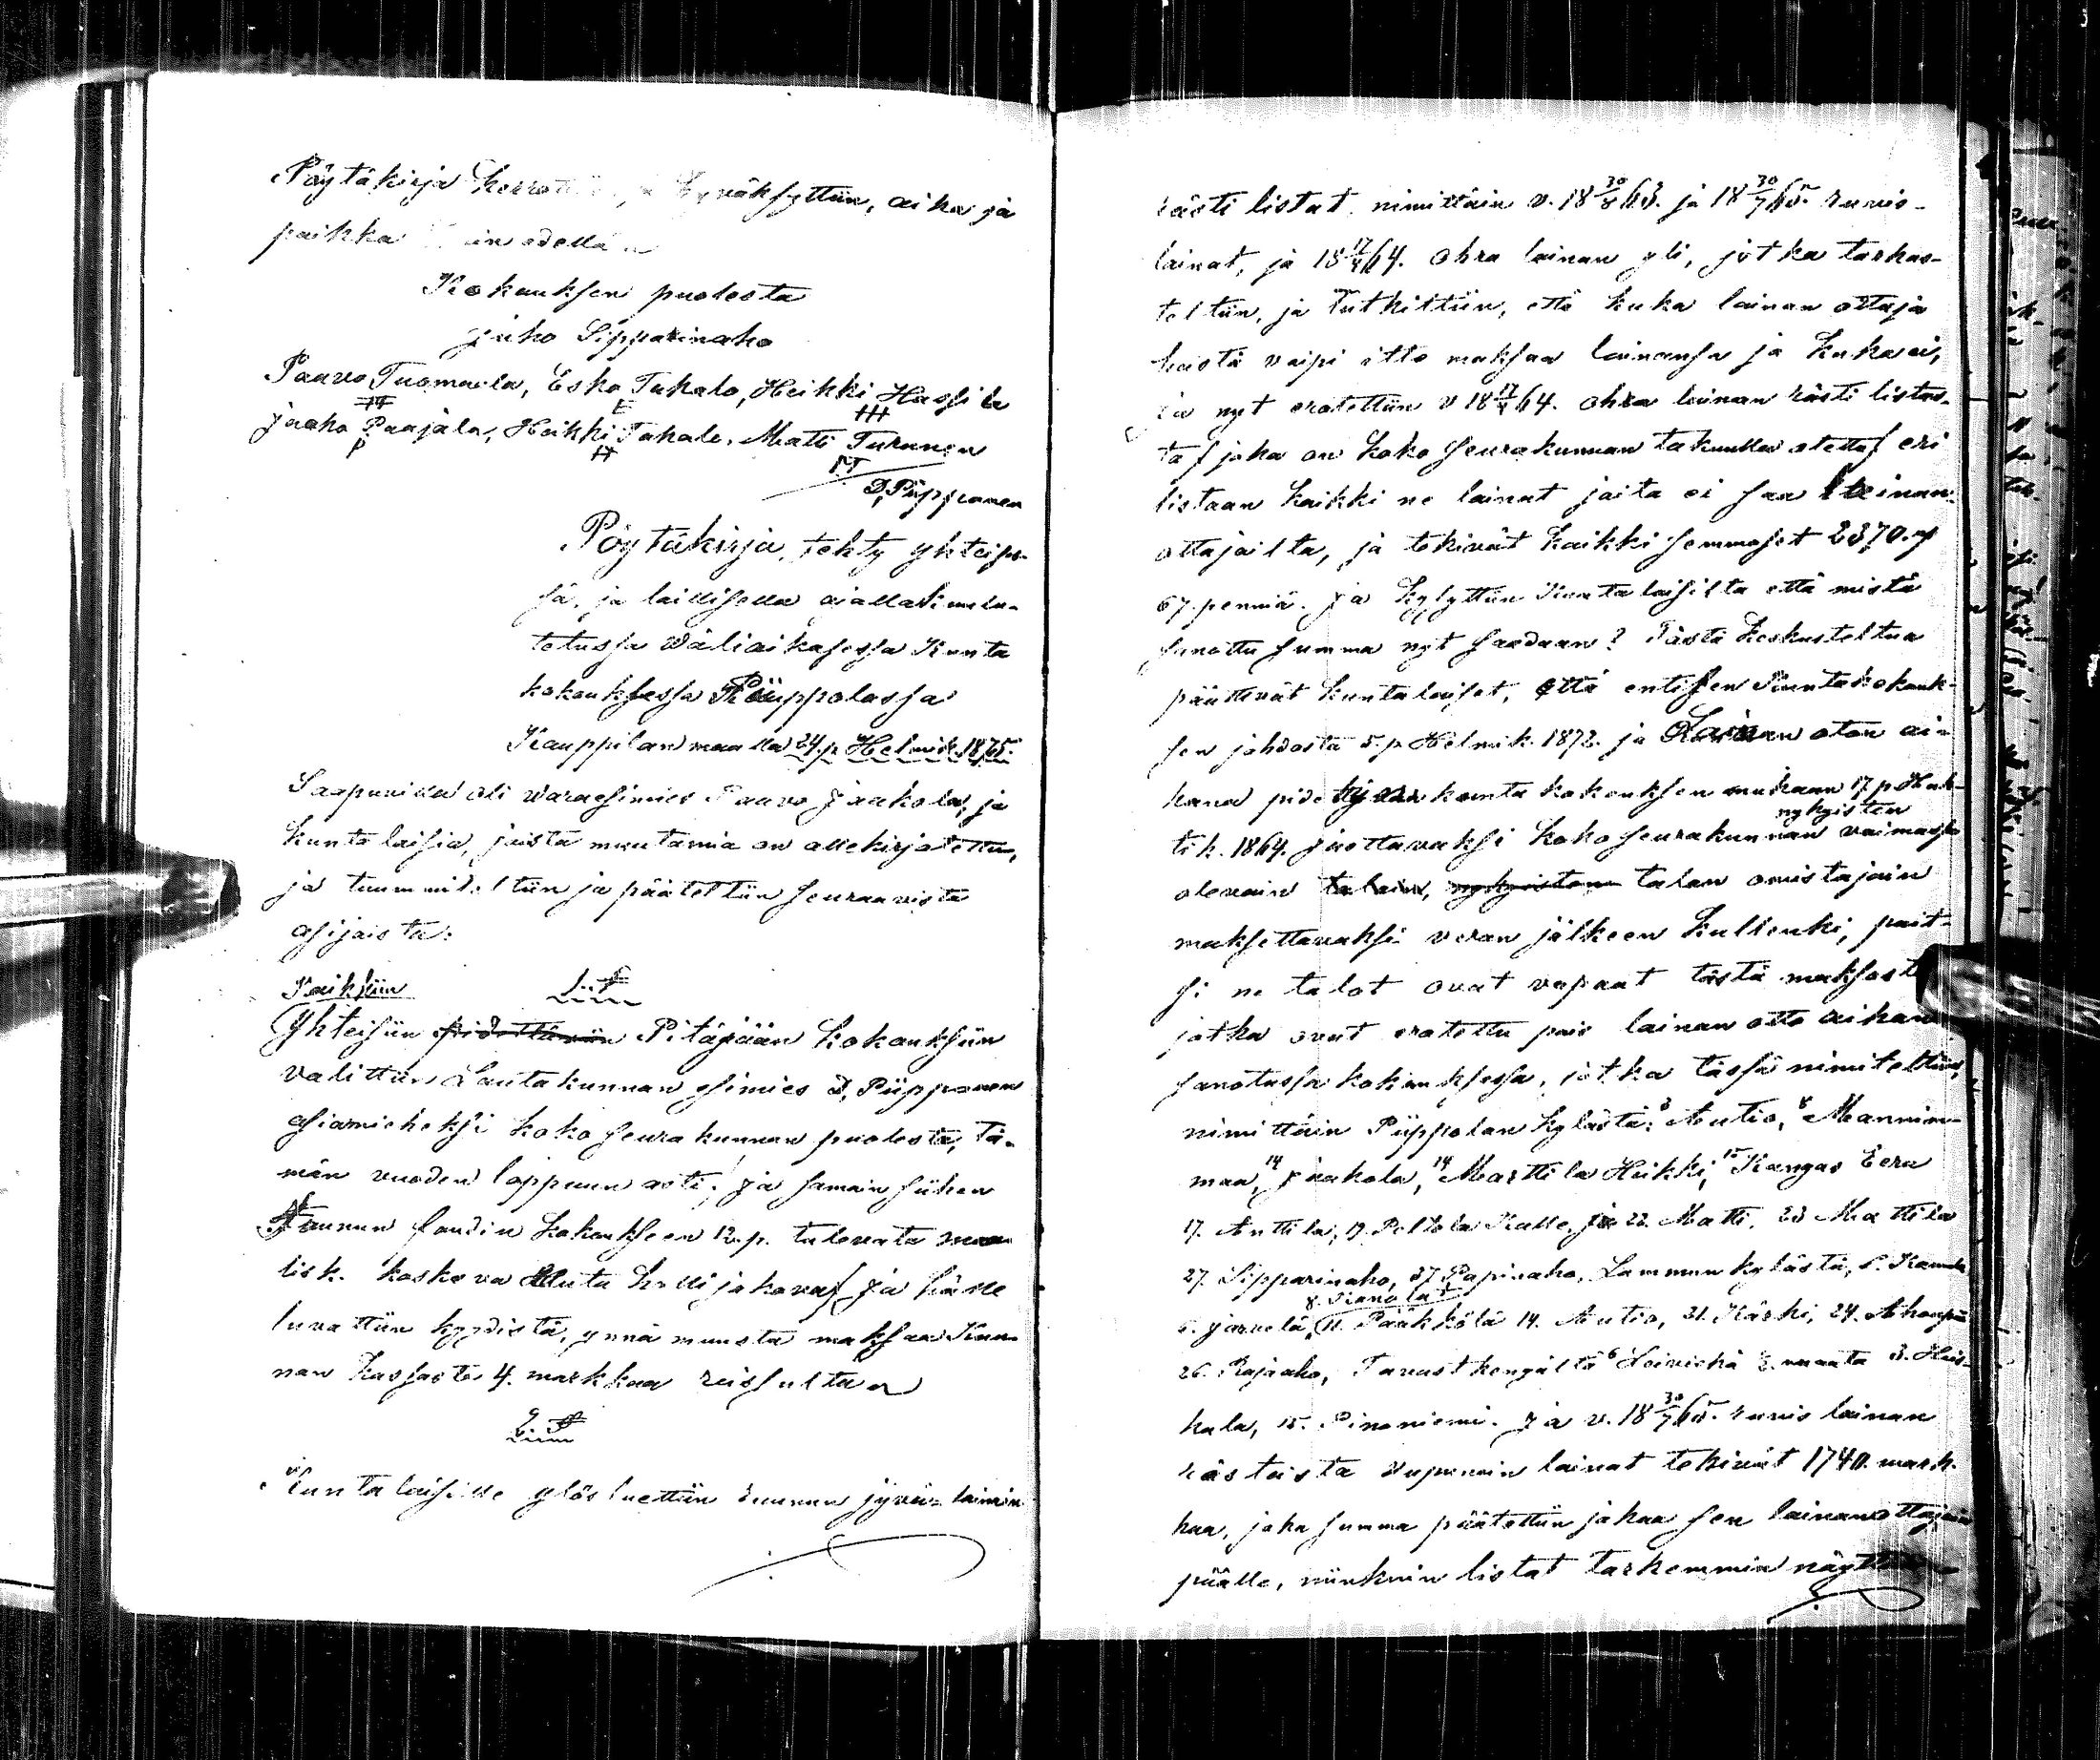 Pöytäkirja hyväksyttiin, aika ja
paikka kuin edellä
Kokouksen puolesta
Juho Sipparinaho
Paavo Tuomaala, Esko Takalo, Heikki Hassila
Jaako Paajala, Heikki Takalo, Matti Turunen
D, Piipponen
Pöytäkirja, tehty yhteises-
sä, ja laillisella ajalla
tetussa Väliaikasessa Kunta
kokouksessa Piippolassa
Kauppilan maalla 24.p Helmik. 1875.
Saapuvilla oli Varaesimies Paavo Jaakola, ja
kuntalaisia, joista muutamia on allekirjotettu,
ja tuumittiin ja päätettiin seuraavista
asijoista:
1:§
Yhteisiin Pitäjään kokouksiin
valittiin Lautakunnan esimies D, Piipponen
asiamieheksi koko seurakunnan puolesta, tä-
män vuoden loppuun asti, ja samoin siihen
kokoukseen 12.p. tulevata maa
lisk. koskeva jakoa, ja hälle
luvattiin kyydistä, ynnä muusta maksaa Kun-
nan kassasta 4. markkaa reissulta
2:§
Kuntalaisille ylös luettiin kunnan jyväin lainain
rästi listat, nimittäin v. 18 30/8 63. ja 18 30/7 65. ruuis-
lainat, ja 18 17/4 64. ohra lainan yli, jotka tarkas-
teltiin, ja tutkittiin, että kuka lainan ottaja
heistä voipi itte maksaa lainansa ja kuka ei,
ja nyt erotettiin v 18 17/4 64. ohra lainan rästi listas-
ta joka on koko seurakunnan takuulla otettu eri
listaan kaikki ne lainat joita ei saa lainan-
ottajailta, ja tekivät kaikki semmoset 2370. mf
67. penniä. Ja kysyttiin Kuntalaisilta että mistä
sanottu summa nyt saadaan? Tästä keskusteltua
päättivät kuntalaiset, että entisen Kuntakokouk-
sen johdosta 5.p Helmik. 1872. ja Lainan oton ai-
kana pidetyn kunta kokouksen mukaan 17.p Huh-
tik. 1864. jaettavaksi koko seurakunnan nykyisten voimassa
olevain talain, nykyisten talon omistajain
maksettavaksi veron jälkeen kullenki, pait-
si ne talot ovat vapaat tästä maksosta
jotka ovat erotettu pois lainan otto aikana
sanotussa kokouksessa, jotka tässä nimitettiin,
nimittäin Piippolan kylästä: 3 Autio, 8 Mannin-
maa, 14 Jaakola, 14 Marttila Heikki, 15 Kangas Eera
17. Anttila, 19. Peltola Kalle, ja 22. Matti, 23 Mattila
27. Sipparinaho, 37. Papinaho, Lammun kylästä, 5.
6. Järvelä, 8. Kanola 11. Pääkkölä 14. Autio, 21. Kärki, 24. Ahonpää
26. Rajaaho, Tavastkengältä 6 Leiviskä 3. Heis-
kala, 15. Pinoniemi. Ja v. 18 30/7 65. ruuis lainan
rästeista lainat tekivät 1740. mark-
kaa, joka summa päätettiin jakaa sen lainanottajain
päälle, niinkuin listat tarkemmin näyttää